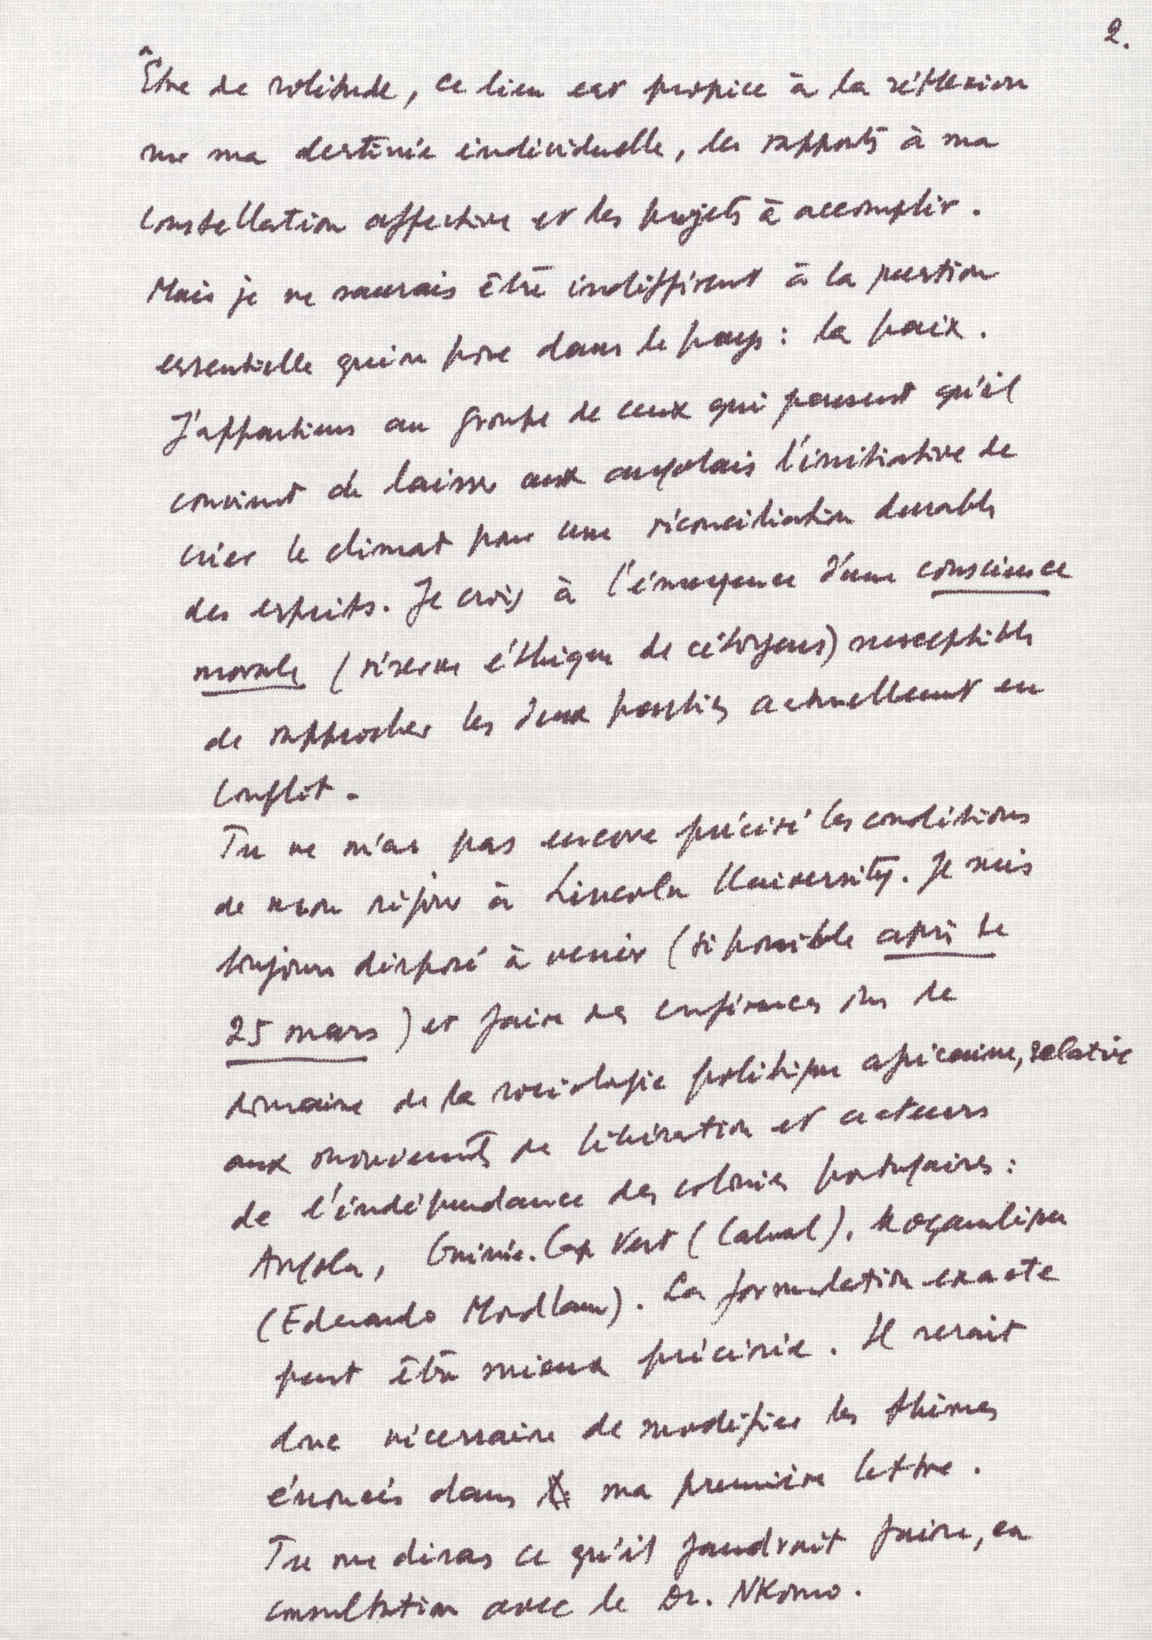 2.
Être de solitude, ce lieu est propice à la réflexion
sur ma destinée individuelle, les rapports à ma
constellation affective et les projets à accomplir.
Mais je ne saurais être indifférent à la question
essentielle qui se pose dans le pays : la paix.
J'appartiens au groupe de ceux qui pensent qu'il
convient de laisser aux angolais l'initiative de
créer le climat pour une réconciliation durable
des esprits. Je crois à l'émergence d'une conscience
morale (réserve éthique de citoyens) susceptible
de rapprocher les deux parties actuellement en
conflit.
Tu ne m'as pas encore précisé les conditions
de mon séjour à Lincoln University. Je suis
toujours disposé à venir (si possible après le
25 mars) et faire des conférences sur le
domaine de la sociologie politique africaine, relative
aux mouvements de libération et acteurs
de l'indépendance des colonies portugaises :
Angola, Guinée-Cap Vert (Cabral), Moçambique
(Eduardo Mondlane). La formulation exacte
peut être mieux précisée. Il serait
donc nécessaire de modifier les thèmes
énoncés dans ma première lettre.
Tu me diras ce qu'il faudrait faire, en
consultation avec le Dr. NKomo.